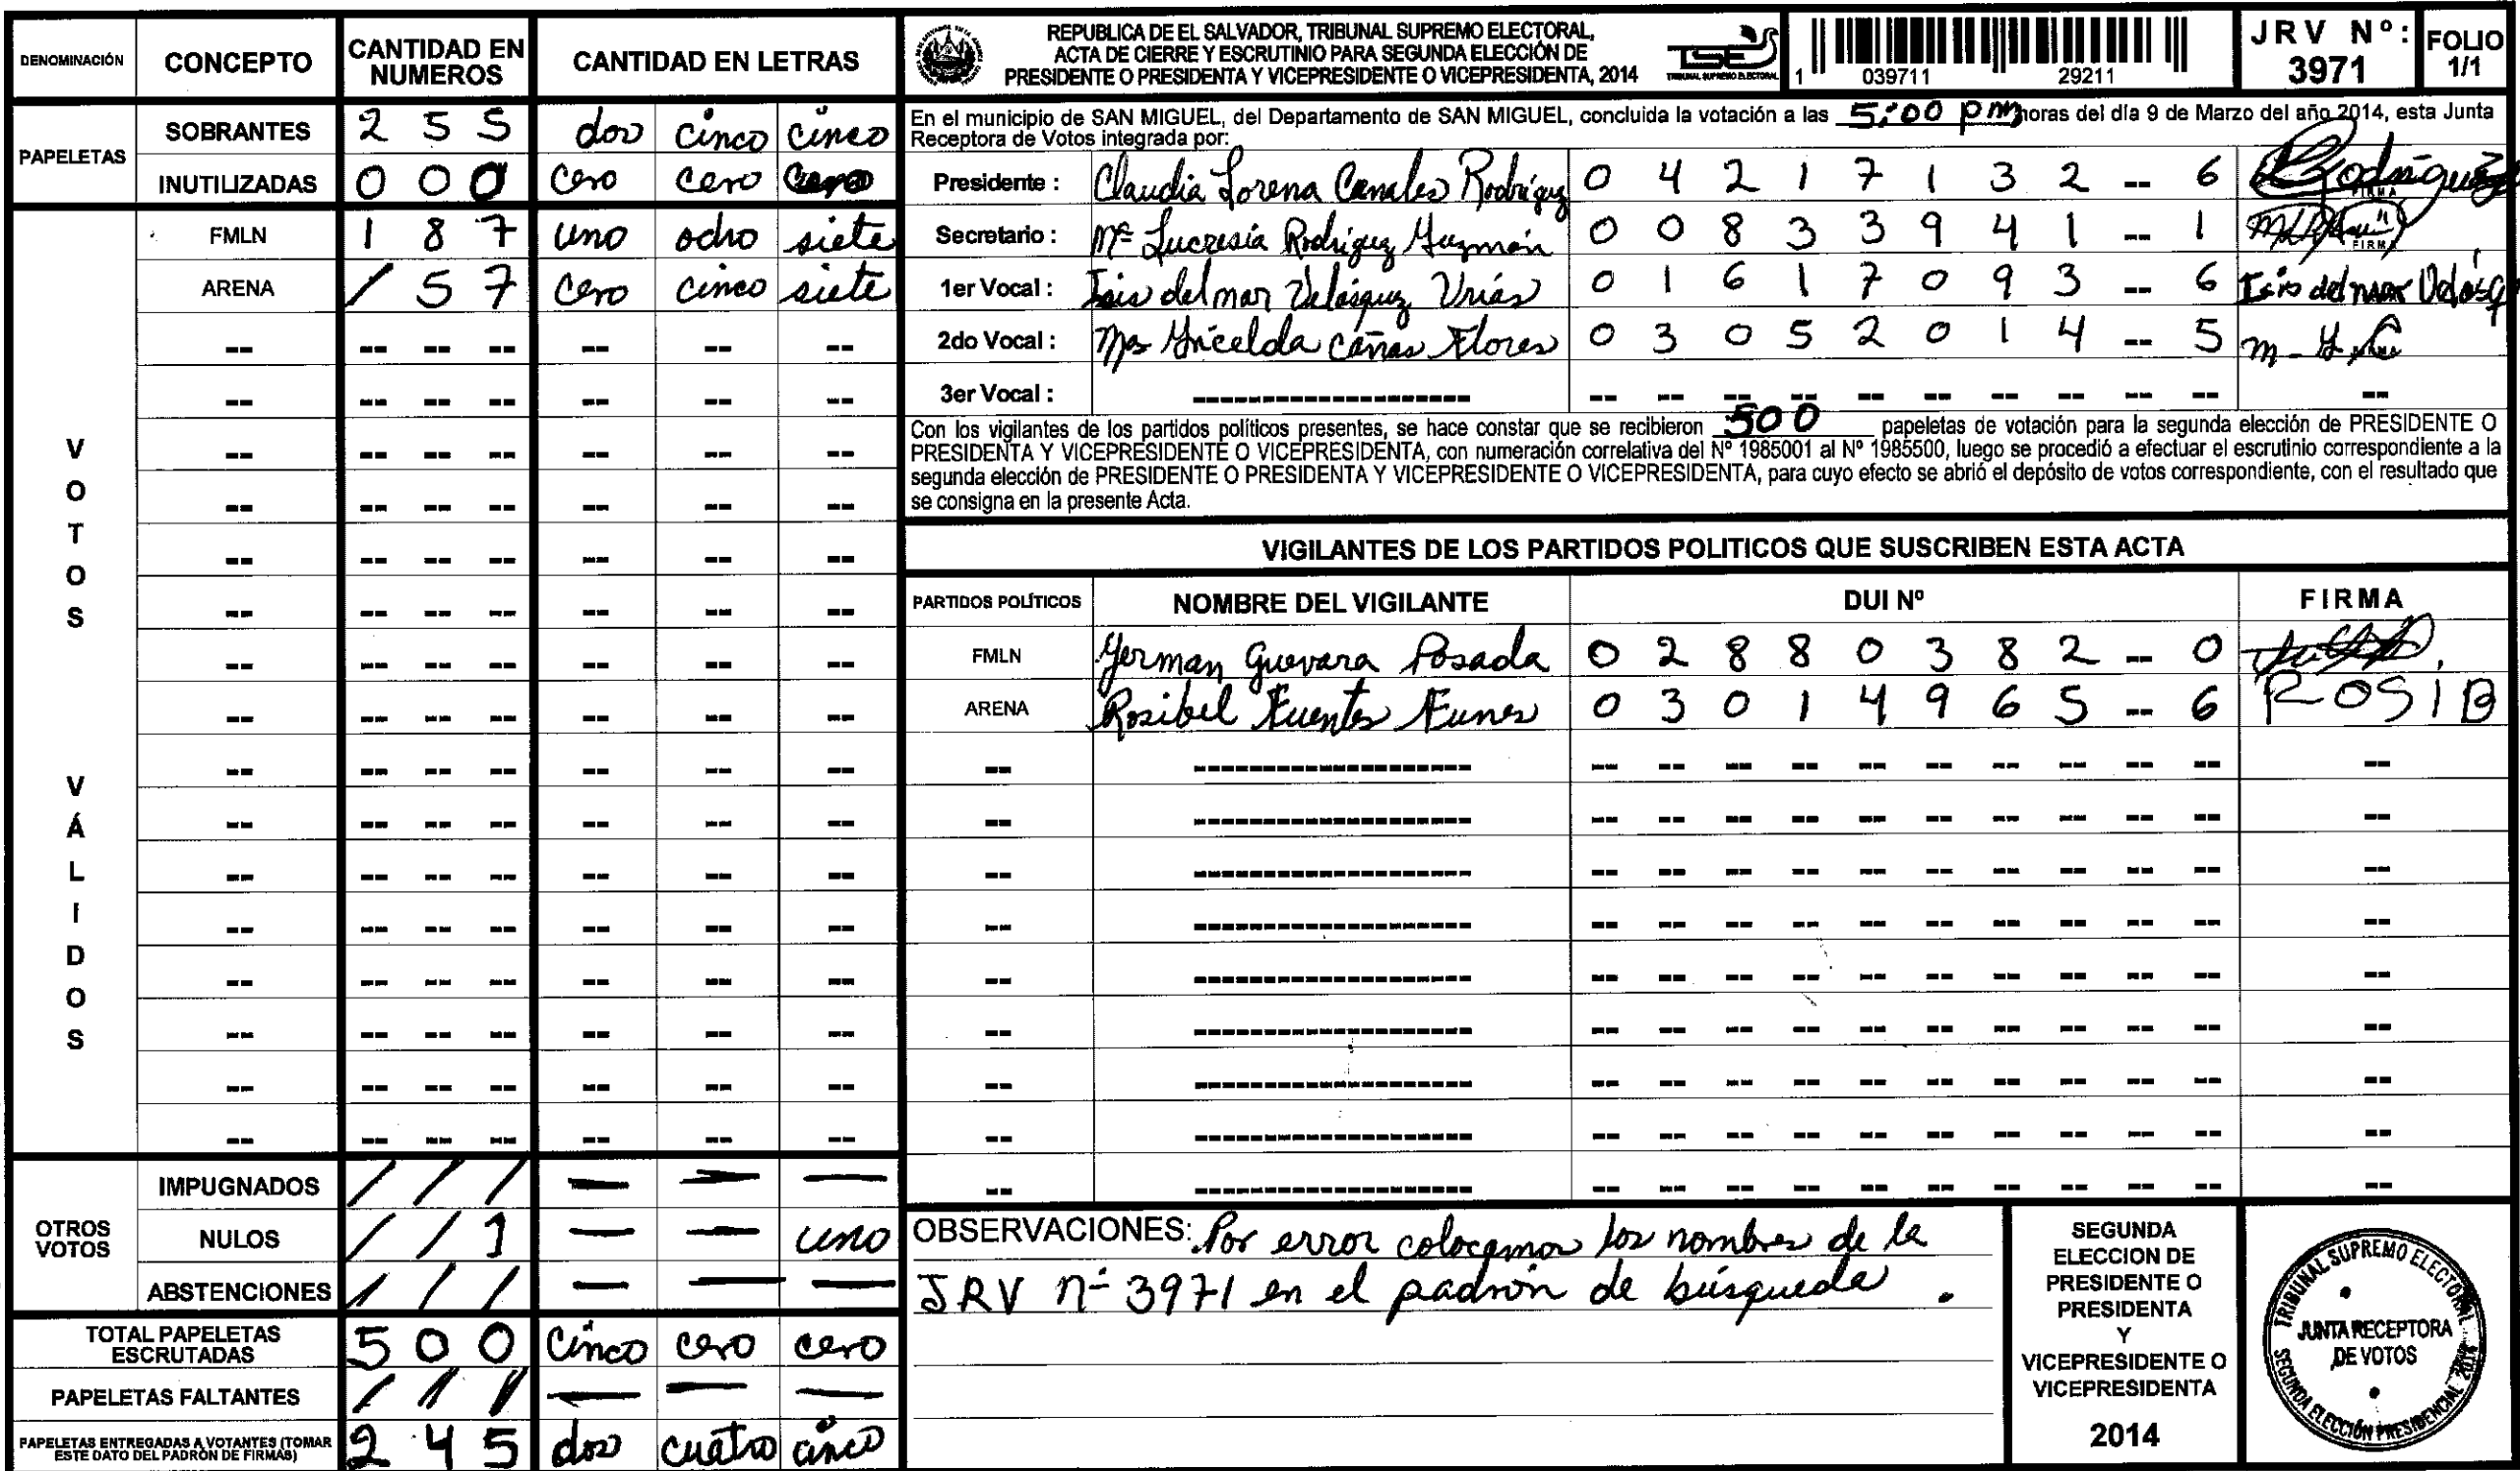 DENOMINACIÓN CONCEPTO CANTIDAD EN NUMEROS CANTIDAD EN LETRAS
PAPELETAS
SOBRANTES 2 5 5 dos cinco cinco
INUTILIZADAS 0 0 0 cero cero cero
VOTOS VÁLIDOS
FMLN 1 8 7 uno ocho siete
ARENA / 5 7 cero cinco siete
OTROS VOTOS
IMPUGNADOS / / / — — —
NULOS / / 1 — — uno
ABSTENCIONES / / / — — —
TOTAL PAPELETAS ESCRUTADAS 5 0 0 cinco cero cero
PAPELETAS FALTANTES / / / — — —
PAPELETAS ENTREGADAS A VOTANTES (TOMAR ESTE DATO DEL PADRÓN DE FIRMAS) 2 4 5 dos cuatro cinco
REPUBLICA DE EL SALVADOR, TRIBUNAL SUPREMO ELECTORAL,
ACTA DE CIERRE Y ESCRUTINIO PARA SEGUNDA ELECCIÓN DE
PRESIDENTE O PRESIDENTA Y VICEPRESIDENTE O VICEPRESIDENTA, 2014
TSE
TRIBUNAL SUPREMO ELECTORAL
1 039711 29211
JRV Nº: 3971
FOLIO 1/1
En el municipio de SAN MIGUEL, del Departamento de SAN MIGUEL, concluida la votación a las 5:00 pm horas del día 9 de Marzo del año 2014, esta Junta
Receptora de Votos integrada por:
Presidente : Claudia Lorena Canales Rodríguez 0 4 2 1 7 1 3 2 -- 6 Rodríguez
Secretario : Mª Lucresia Rodriguez Guzmán 0 0 8 3 3 9 4 1 -- 1 FIRMA
1er Vocal : Isis del mar Velásquez Urías 0 1 6 1 7 0 9 3 -- 6 Isis del mar Velásq
2do Vocal : Ma Gricelda Cañas Flores 0 3 0 5 2 0 1 4 -- 5
3er Vocal : -- -- -- -- -- -- -- -- -- -- --
Con los vigilantes de los partidos políticos presentes, se hace constar que se recibieron 500 papeletas de votación para la segunda elección de PRESIDENTE O
PRESIDENTA Y VICEPRESIDENTE O VICEPRESIDENTA, con numeración correlativa del Nº 1985001 al Nº 1985500, luego se procedió a efectuar el escrutinio correspondiente a la
segunda elección de PRESIDENTE O PRESIDENTA Y VICEPRESIDENTE O VICEPRESIDENTA, para cuyo efecto se abrió el depósito de votos correspondiente, con el resultado que
se consigna en la presente Acta.
VIGILANTES DE LOS PARTIDOS POLITICOS QUE SUSCRIBEN ESTA ACTA
PARTIDOS POLÍTICOS NOMBRE DEL VIGILANTE DUI Nº FIRMA
FMLN German Guevara Posada 0 2 8 8 0 3 8 2 -- 0
ARENA Rosibel Fuentes Funes 0 3 0 1 4 9 6 5 -- 6 ROSIB
OBSERVACIONES: Por error colocamos los nombres de la
JRV nº 3971 en el padrón de búsqueda.
SEGUNDA
ELECCION DE
PRESIDENTE O
PRESIDENTA
Y
VICEPRESIDENTE O
VICEPRESIDENTA
2014
TRIBUNAL SUPREMO ELECTORAL
JUNTA RECEPTORA
DE VOTOS
SEGUNDA ELECCIÓN PRESIDENCIAL 2014